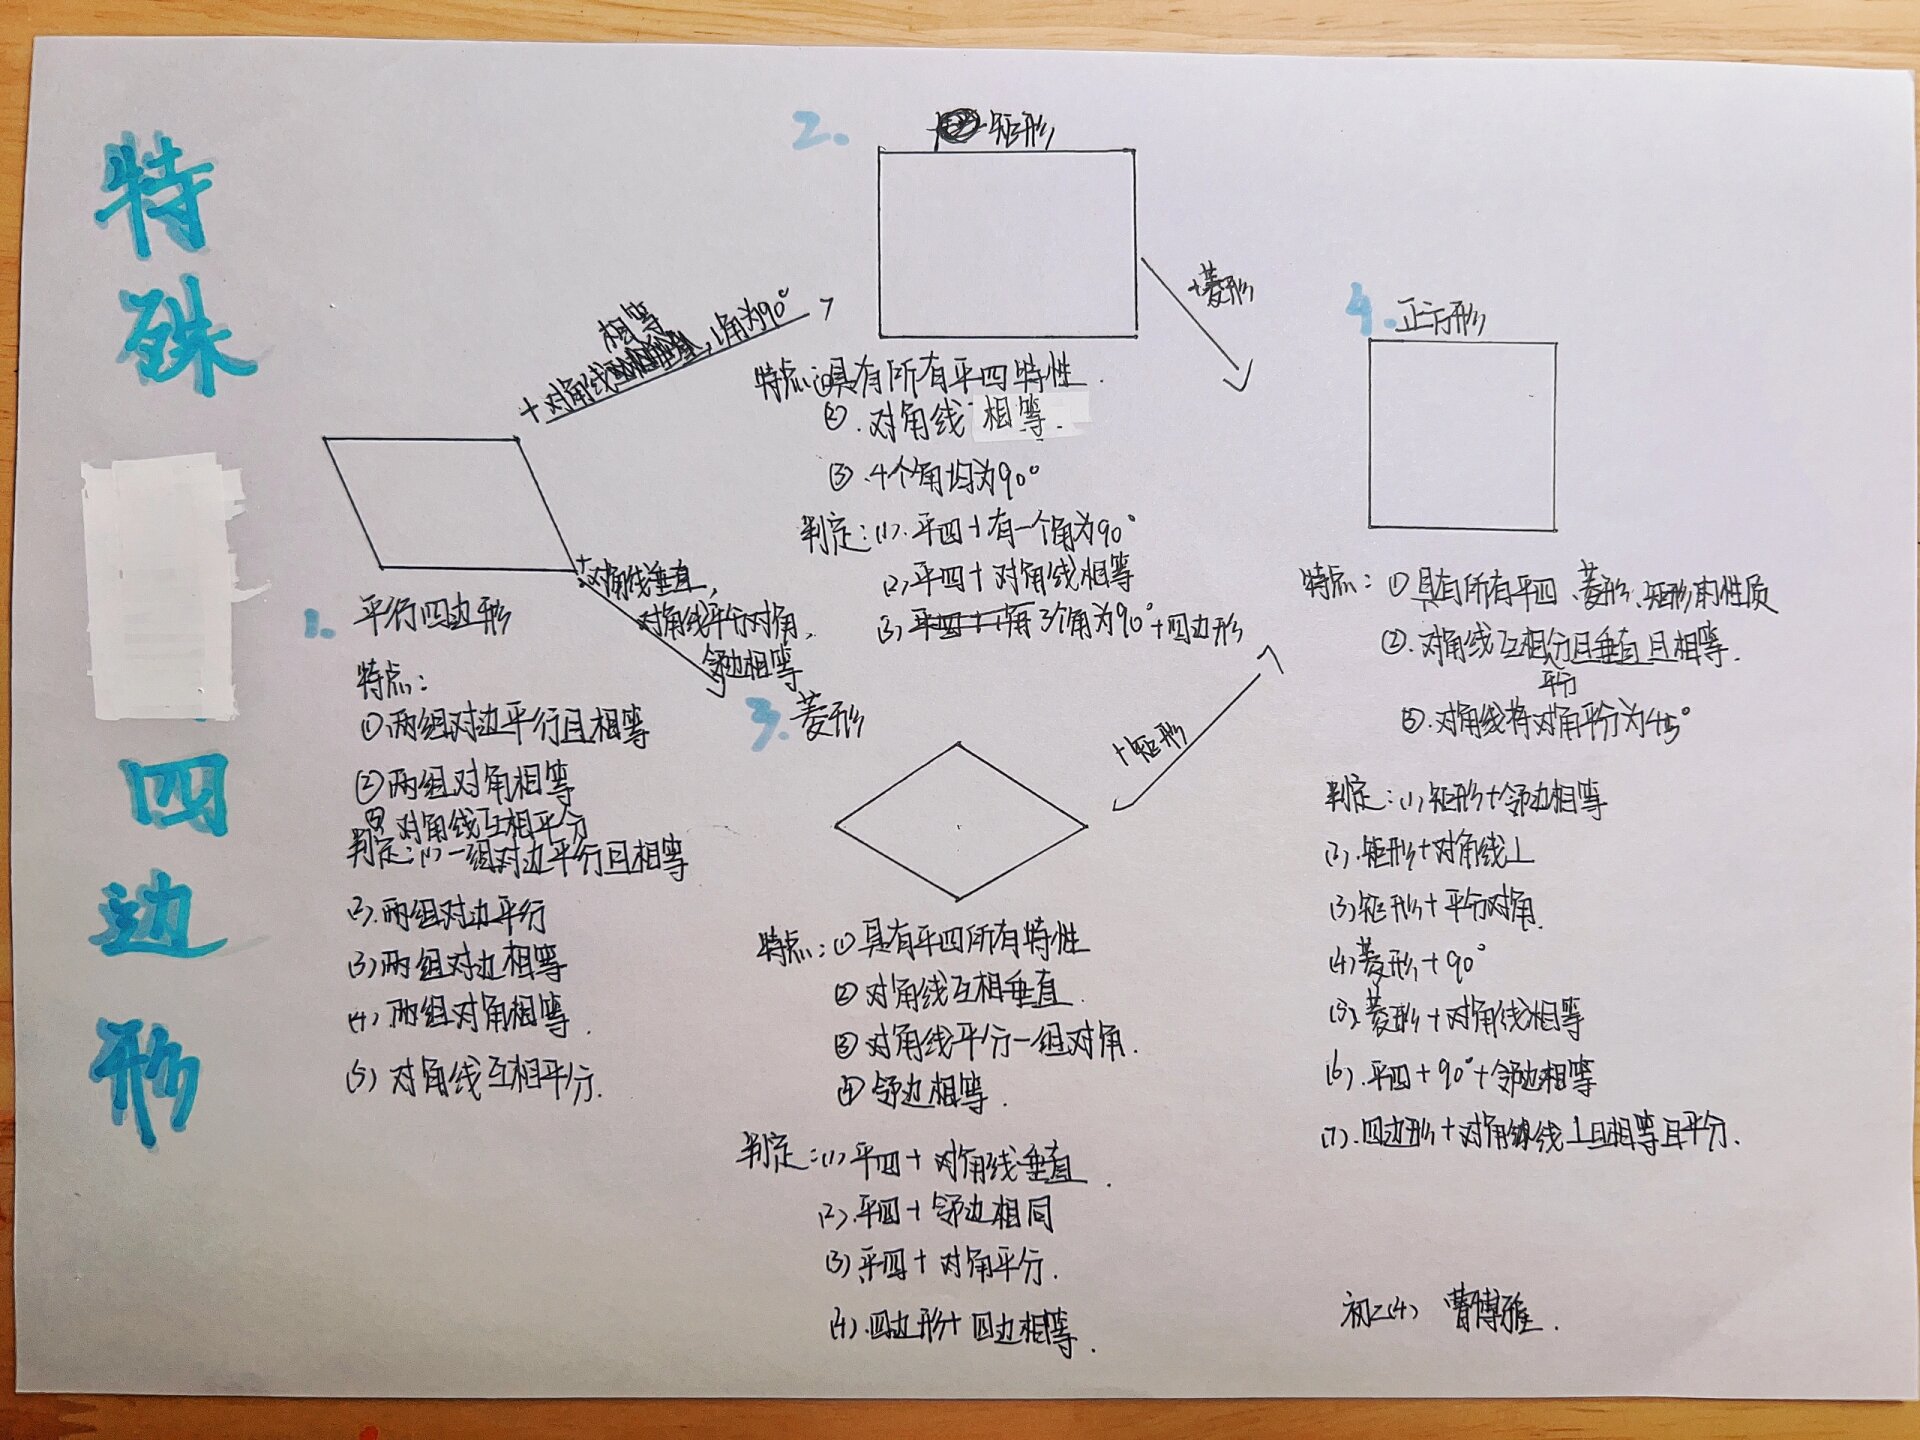 特殊四边形
2.
矩形
+对角线相等,1角为90°
+菱形
特点:①具有所有平四特性.
②.对角线相等.
③.4个角均为90°
判定:(1).平四+有一个角为90°
(2)平四+对角线相等
(3)3个角为90°+四边形
4.正方形
特点:①具有所有平四、菱形、矩形的性质
②.对角线互相平分且垂直且相等.
③.对角线将对角平分为45°
判定:(1)矩形+邻边相等
(2).矩形+对角线⊥
(3)矩形+平分对角.
(4)菱形+90°
(5).菱形+对角线相等
(6).平四+90°+邻边相等
(7).四边形+对角线⊥且相等且平分.
+对角线垂直,
对角线平分对角,
邻边相等
1.平行四边形
特点:
①两组对边平行且相等
②两组对角相等
③对角线互相平分
判定:(1)一组对边平行且相等
(2).两组对边平行
(3)两组对边相等
(4)两组对角相等.
(5)对角线互相平分.
3.菱形
+矩形
特点:①具有平四所有特性
②对角线互相垂直.
③对角线平分一组对角.
④邻边相等.
判定:(1)平四+对角线垂直.
(2).平四+邻边相同
(3)平四+对角平分.
(4).四边形+四边相等.
初二(4) 曹博雅.